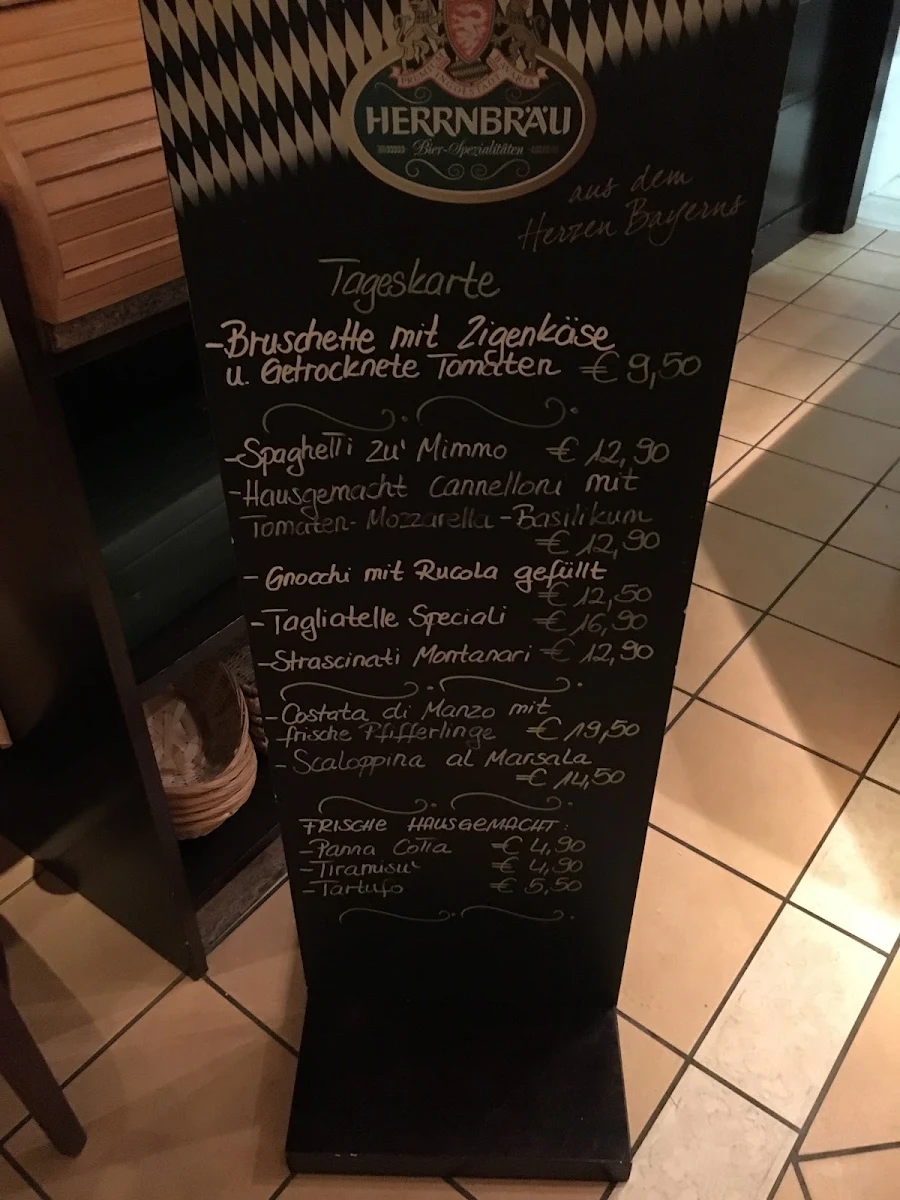 HERRNBRÄU
Bier-Spezialitäten
aus dem
Herzen Bayerns
Tageskarte
-Bruschette mit Zigenkäse
u. Getrocknete Tomaten € 9,50
-Spaghetti zu' Mimmo € 12,90
-Hausgemacht Cannelloni mit
Tomaten-Mozzarella-Basilikum
€ 12,90
- Gnocchi mit Rucola gefüllt
€ 12,50
-Tagliatelle Speciali € 16,90
-Strascinati Montanari € 12,90
-Costata di Manzo mit
frische Pfifferlinge € 19,50
-Scaloppina al Marsala
€ 14,50
FRISCHE HAUSGEMACHT:
-Panna Cotta € 4,90
-Tiramisu' € 4,90
-Tartufo € 5,50